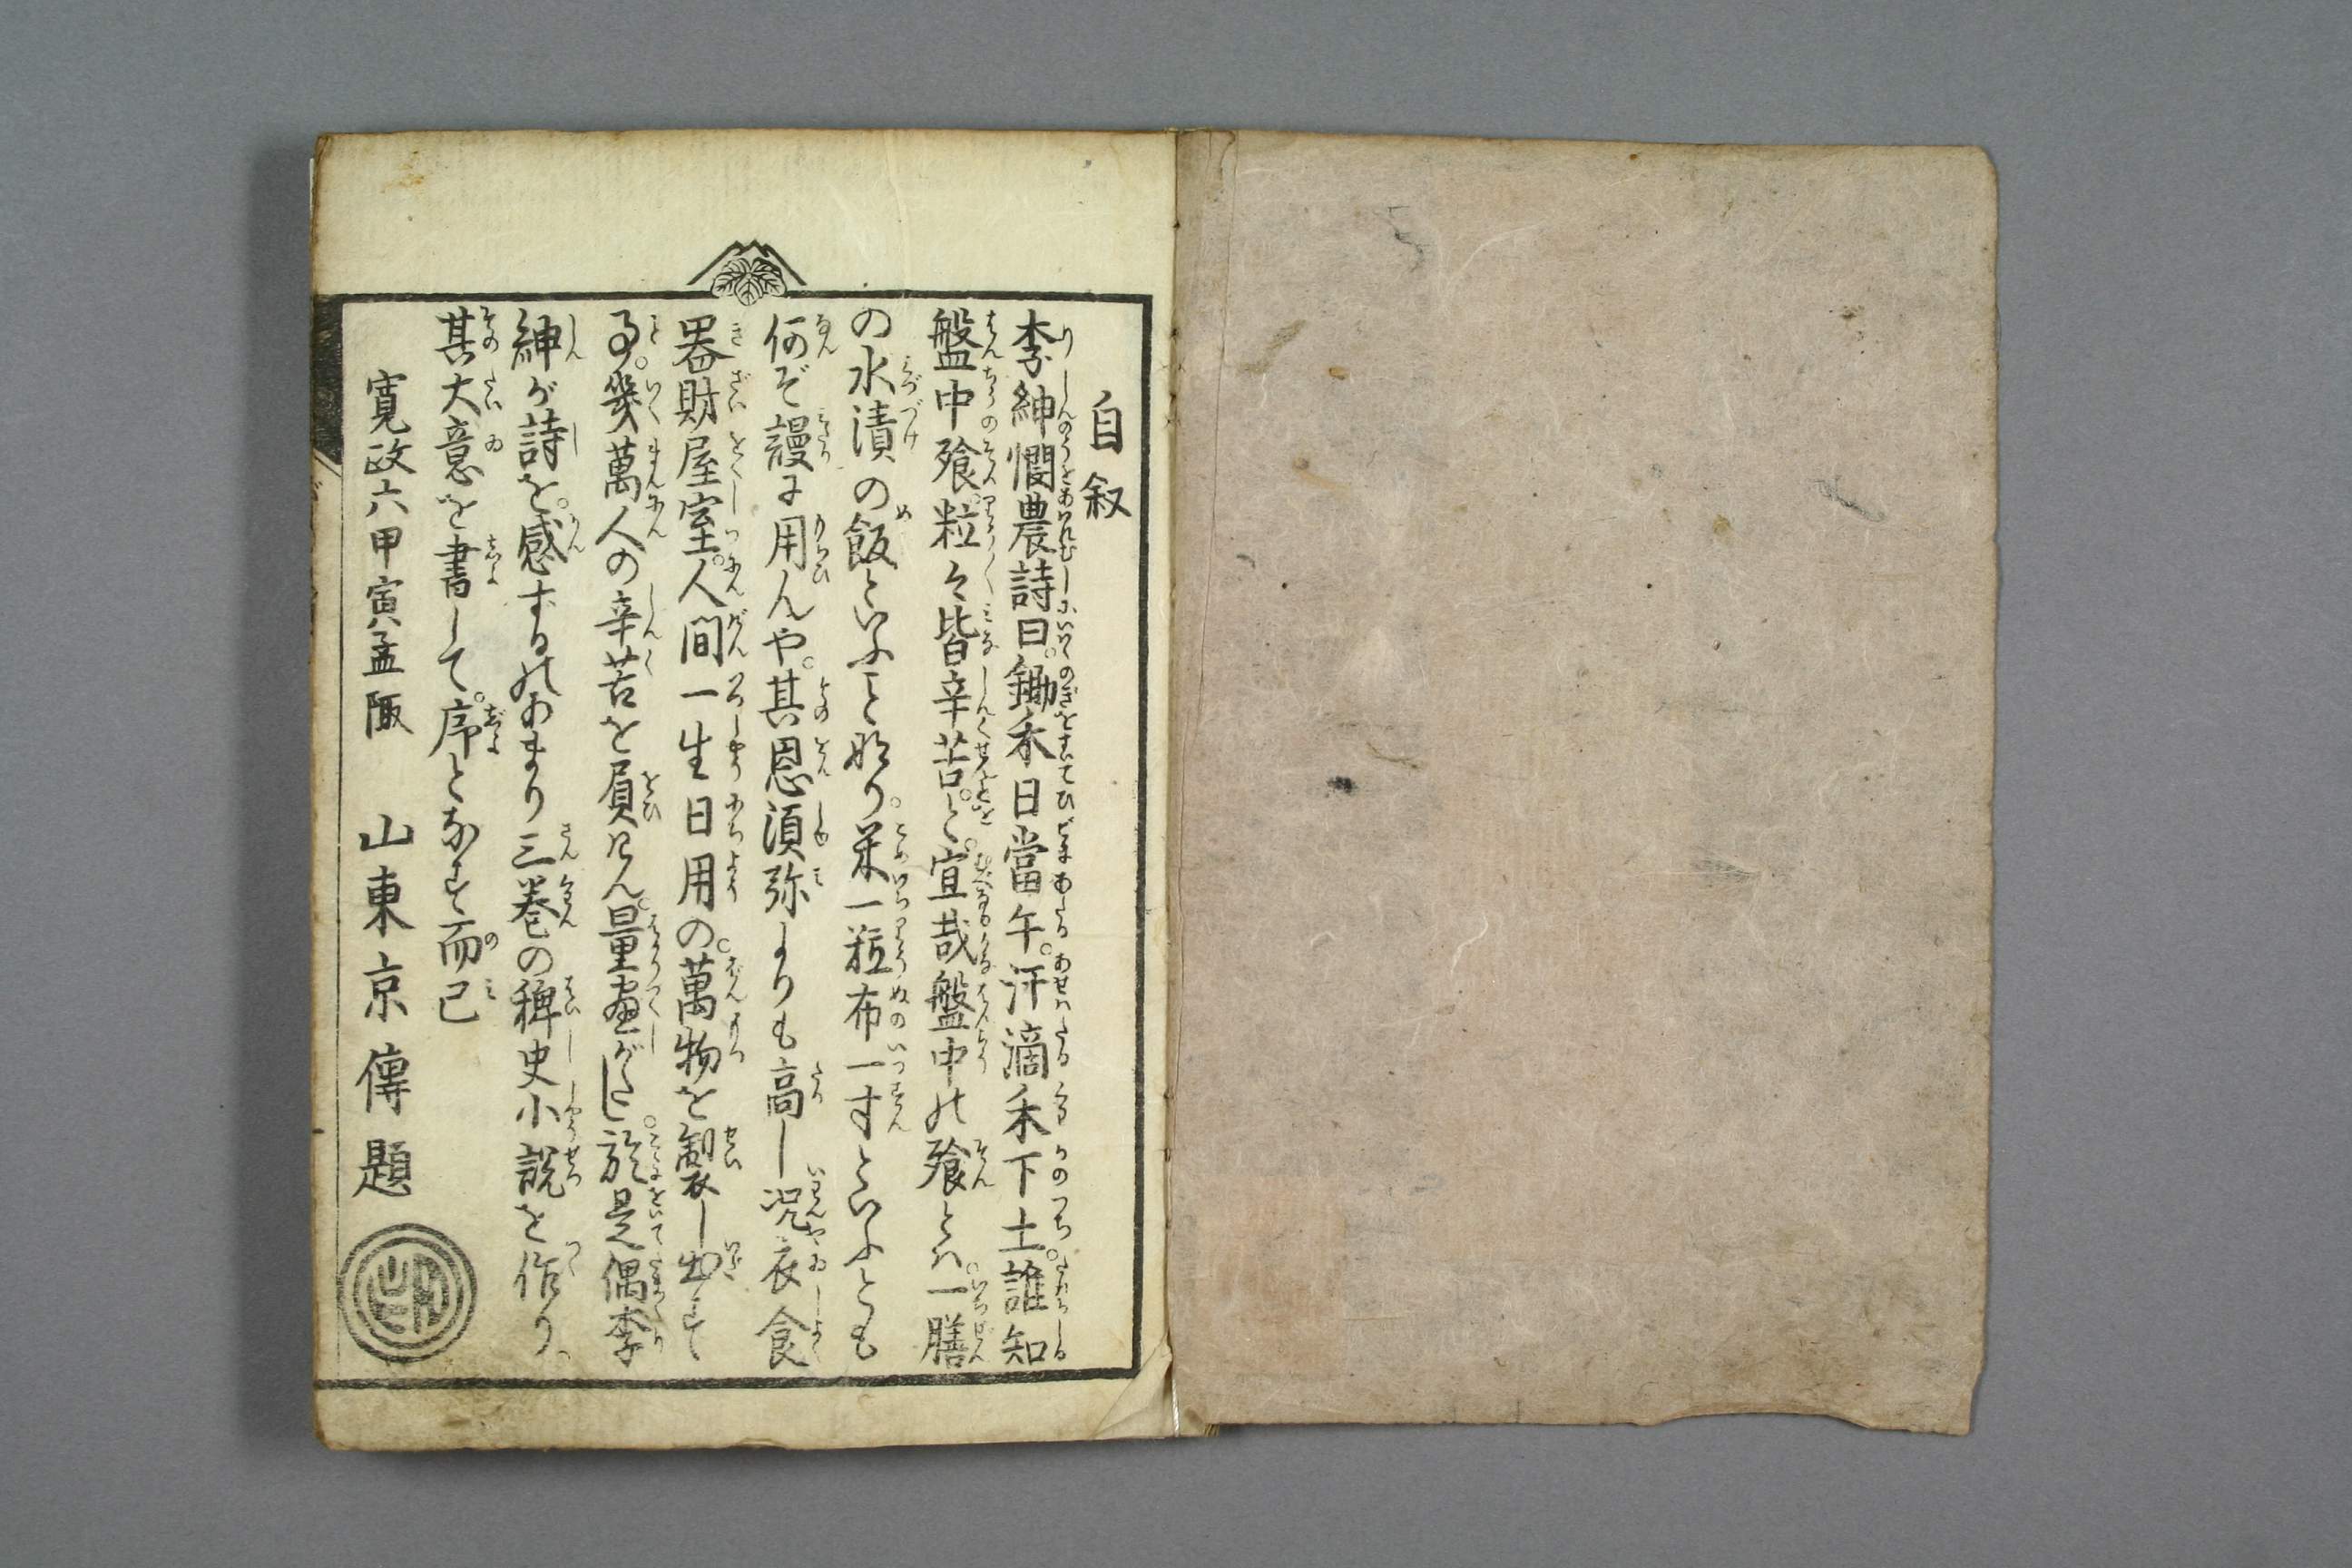 自叙
李紳憫農詩曰。鋤禾日當午。汗滴禾下土。誰知
盤中飱。粒々皆辛苦。と。宜哉盤中の飱とハ。一膳
の水漬の飯といふこと也り。米一粒布一寸といふとも
何ぞ謾に用んや。其恩須弥よりも高し况衣食
器財屋室。人間一生日用の。萬物を製し出す
事。幾萬人の辛苦を屓けん。量盡がたし。於是偶李
紳が詩を。感ずるのあまり三巻の稗史小説を作り
其大意を書して。序となす而已
寛政六甲寅孟陬　山東京傳題